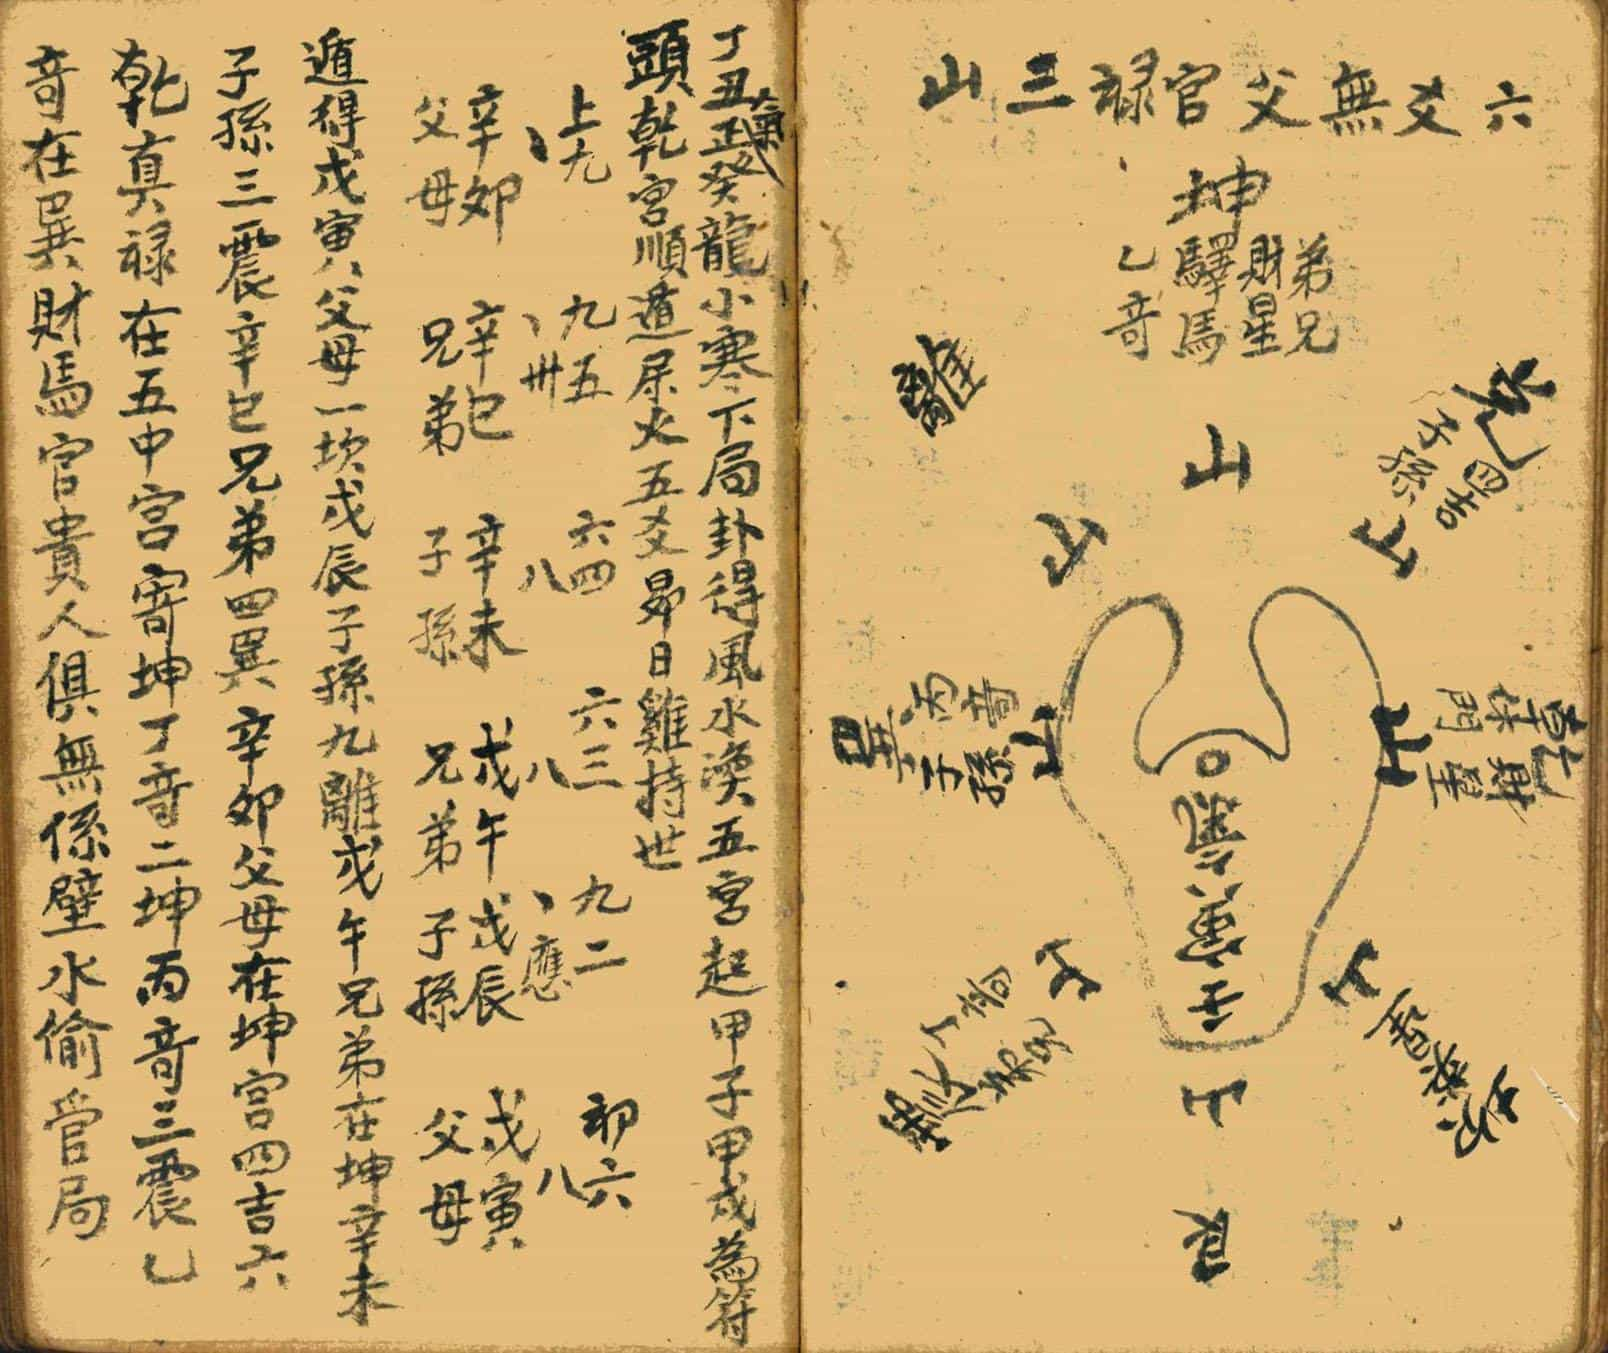 六爻無父官禄三山
坤
弟兄
財星
驛馬
乙奇
兌
四吉
子孫
山
離
山
山
乾
休門
財星
山
巽
丙奇
子孫
山
坎
山
山
山
艮
丁丑正氣癸龍小寒下局卦得風水渙五宮起甲子甲戌為符
頭乾宮順遁尿火五爻昴日雞持世
上九 九五 六四 六三 九二 初六
、 、世 八 八 、應 八
辛卯 辛巳 辛未 戊午 戊辰 戊寅
父母 兄弟 子孫 兄弟 子孫 父母
遁得戊寅八父母一坎戊辰子孫九離戊午兄弟在坤辛未
子孫三震辛巳兄弟四巽辛卯父母在坤宮四吉六
乾真禄在五中宮寄坤丁奇二坤丙奇三震乙
奇在巽財馬官貴人俱無係壁水偷官局